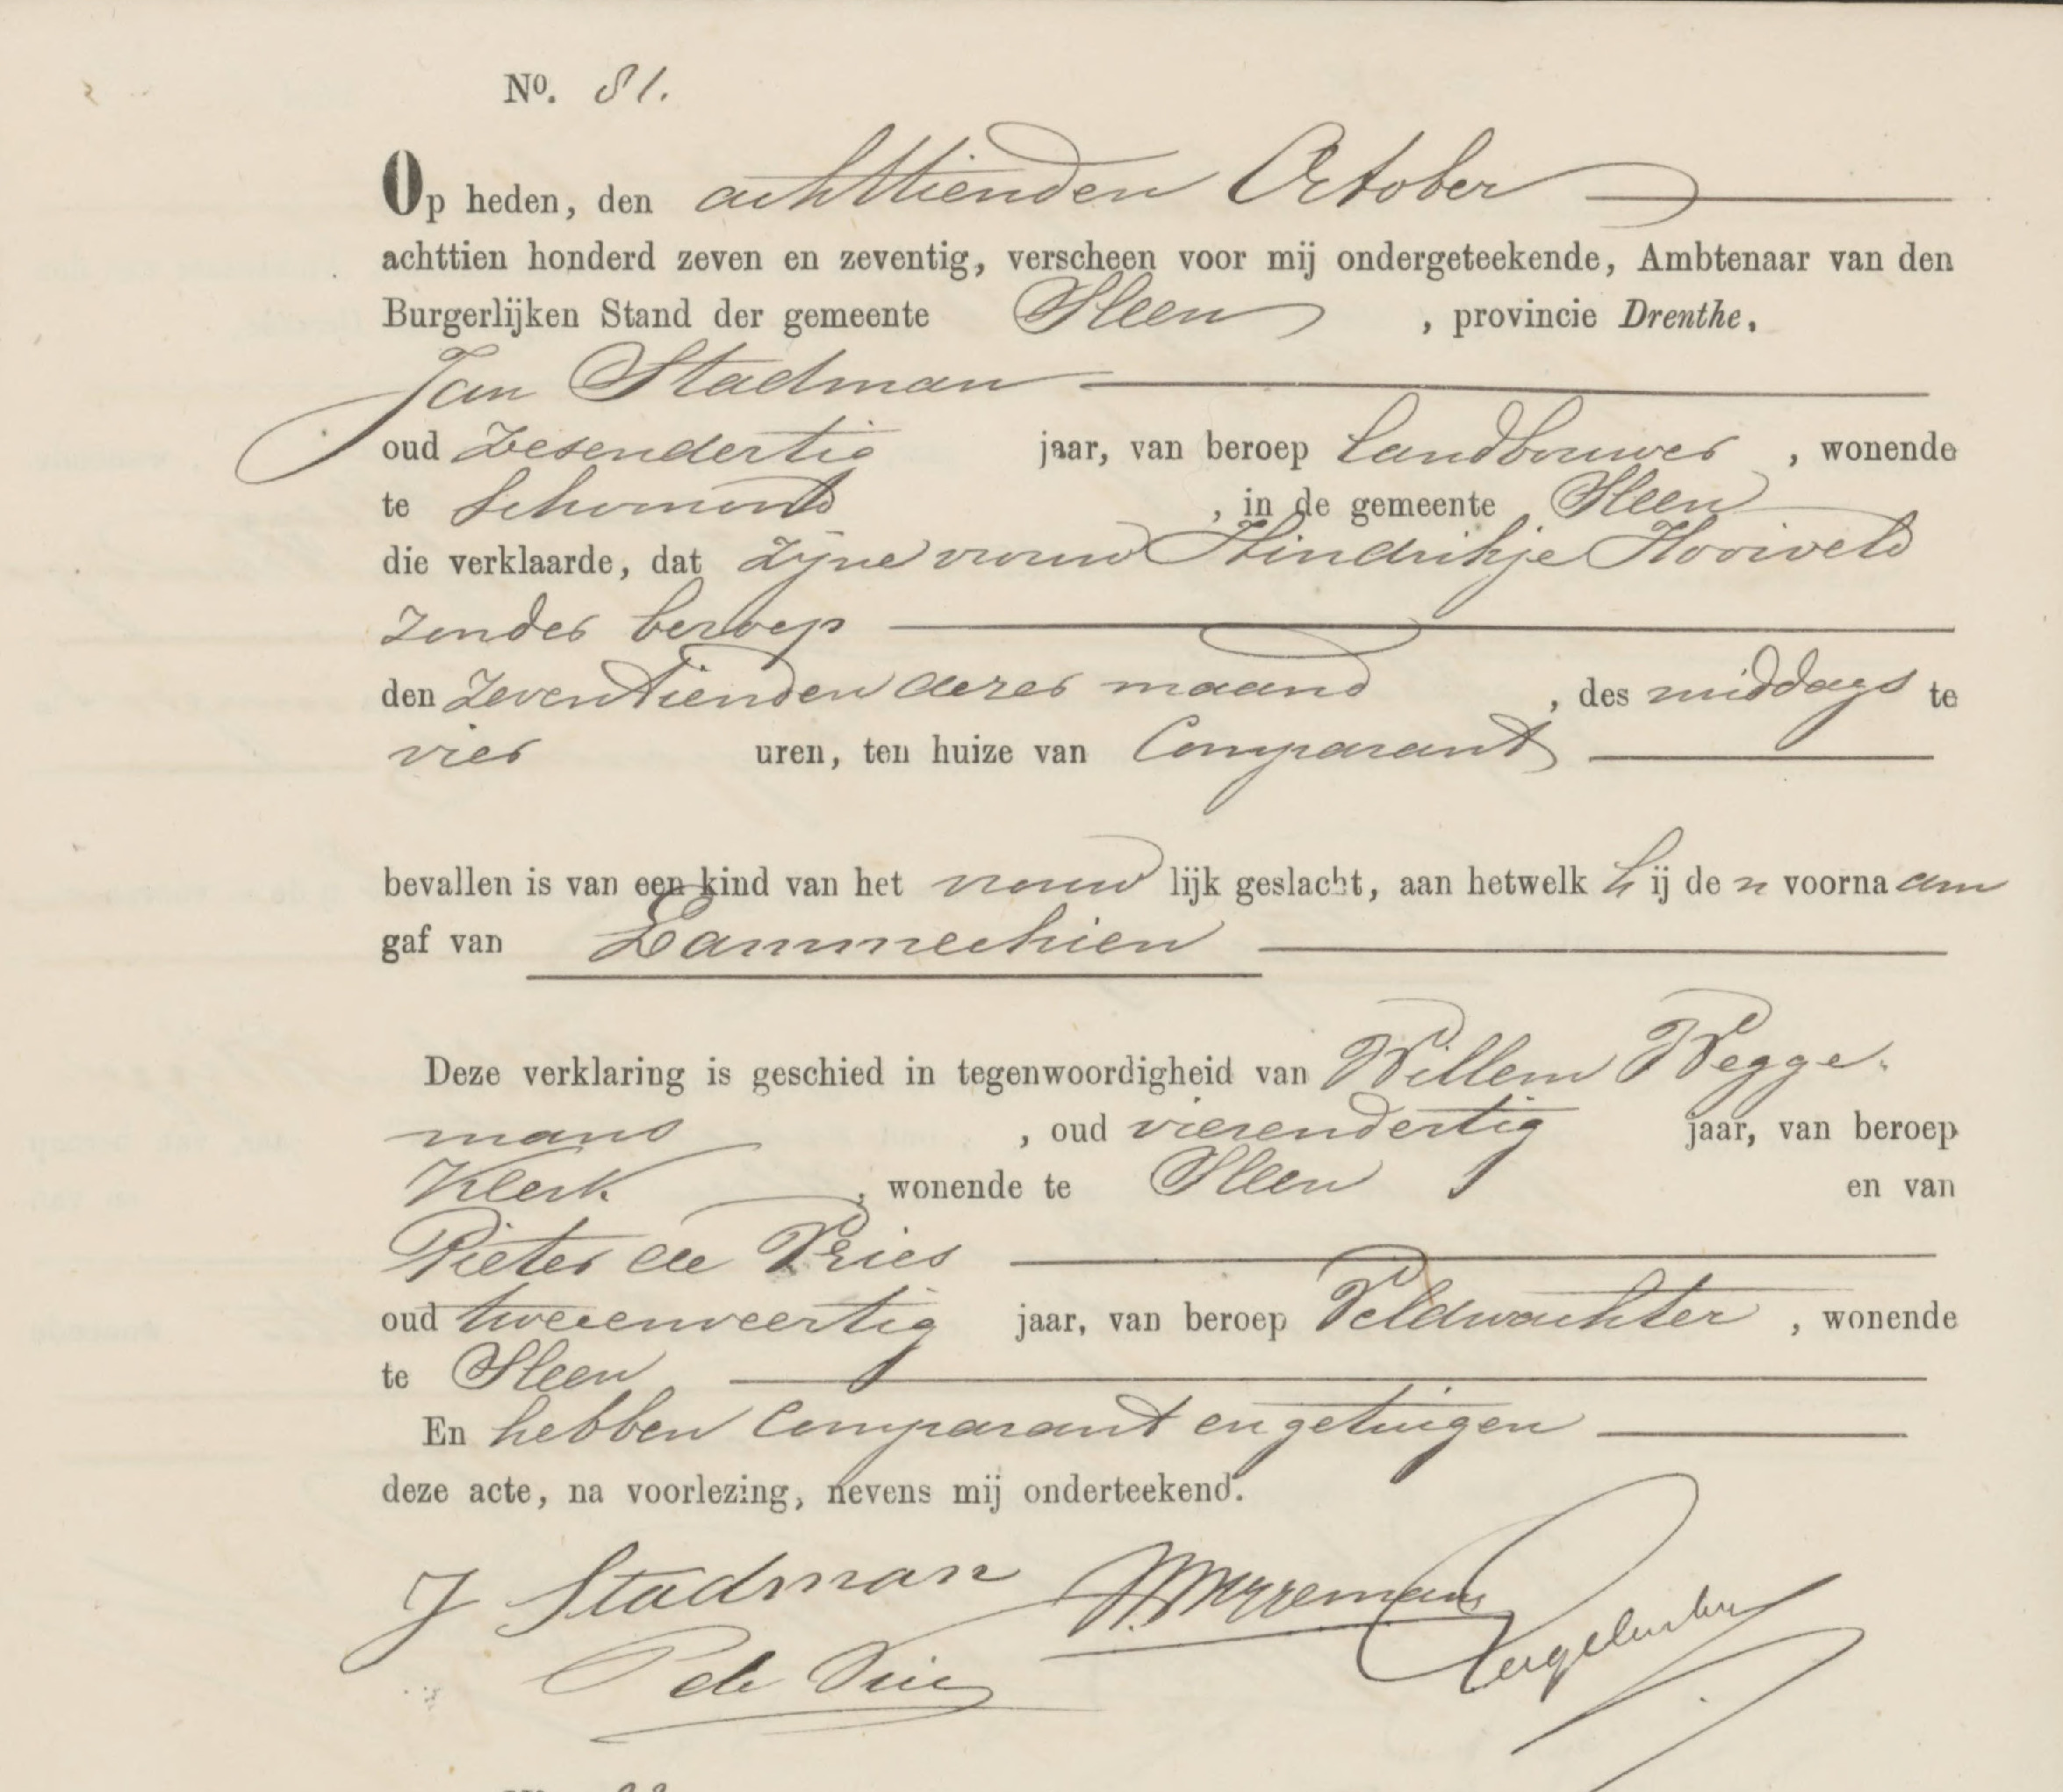 No. 81.
Op heden, den achttienden October
achttien honderd zeven en zeventig, verscheen voor mij ondergeteekende, Ambtenaar van den
Burgerlijken Stand der gemeente Sleen, provincie Drenthe,
Jan Stadman
oud zesendertig jaar, van beroep landbouwer, wonende
te Schoonoord, in de gemeente Sleen
die verklaarde, dat zijne vrouw Hindrikje Hooiveld
zonder beroep
den zeventienden dezer maand, des middags te
vier uren, ten huize van Comparant
bevallen is van een kind van het vrouwlijk geslacht, aan hetwelk hij den voornaam
gaf van Lammechien
Deze verklaring is geschied in tegenwoordigheid van Willem Wegge-
mans, oud vierendertig jaar, van beroep
Klerk, wonende te Sleen en van
Pieter de Vries
oud tweeenveertig jaar, van beroep Veldwachter, wonende
te Sleen
En hebben Comparant en getuigen
deze acte, na voorlezing, nevens mij onderteekend.
J Stadman W. Weggemans
P de Vries